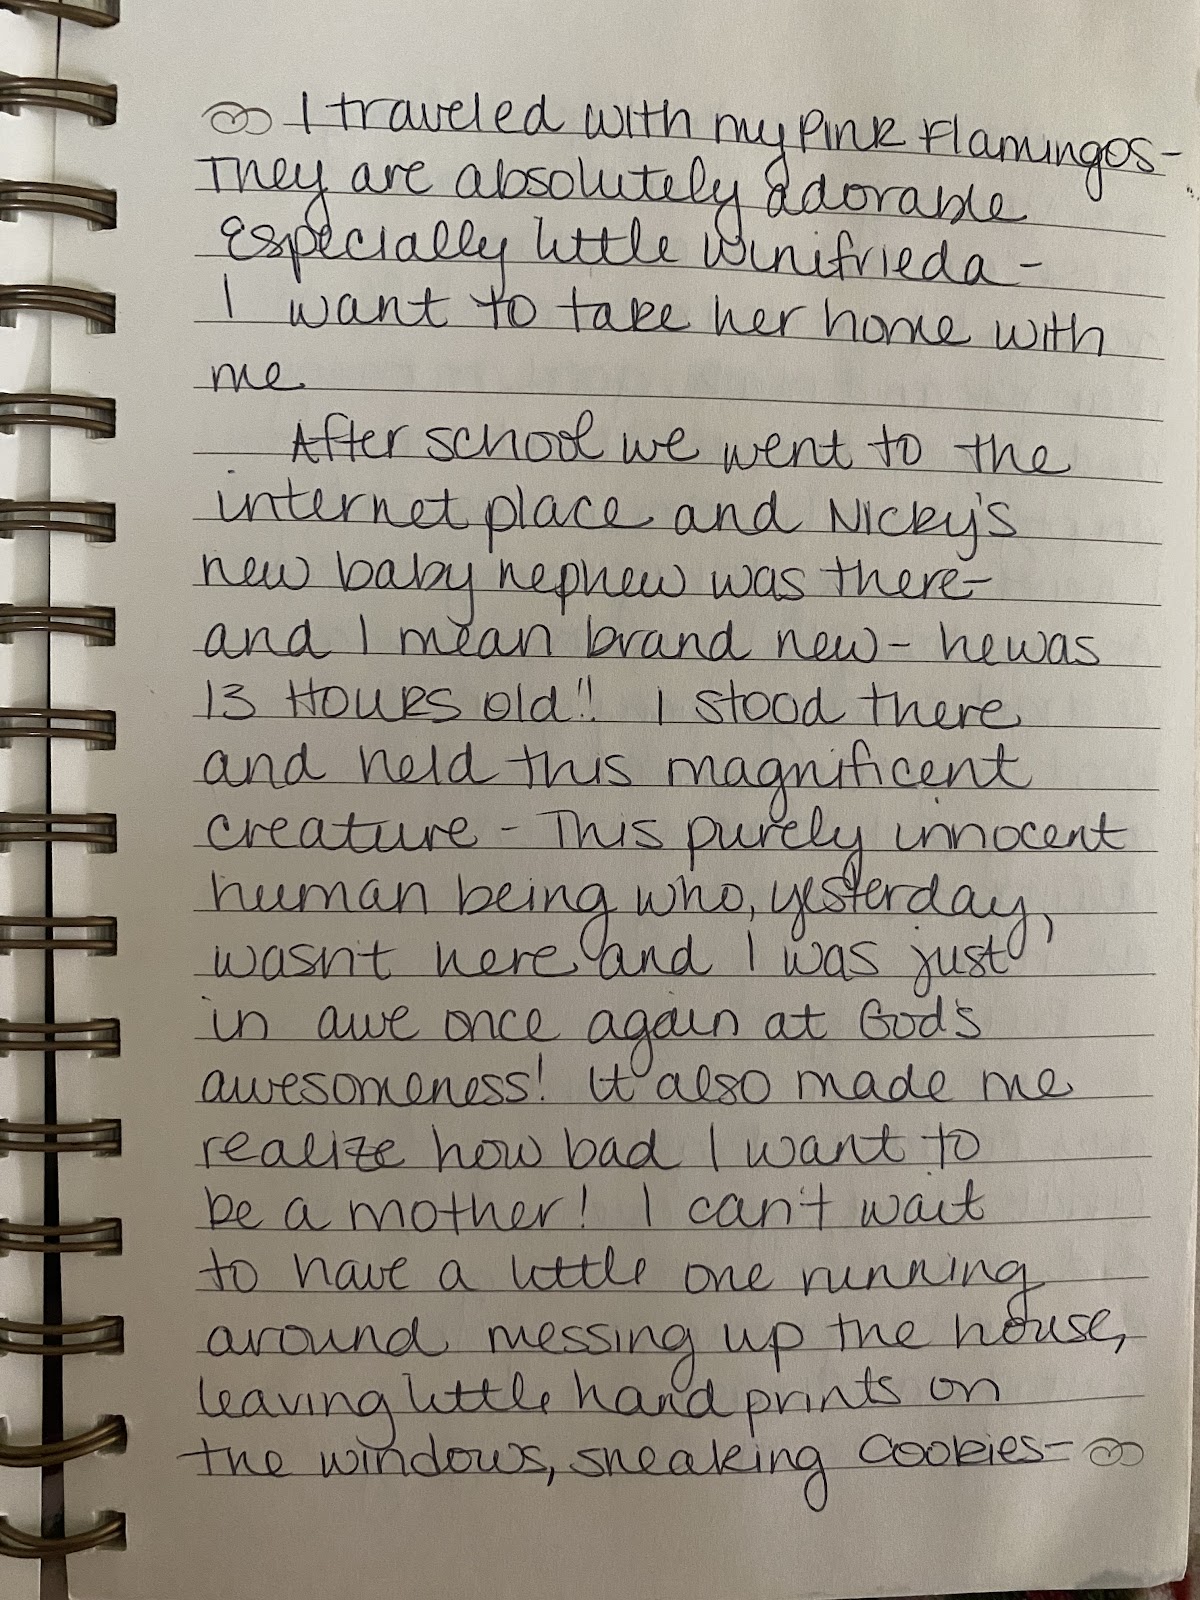 I traveled with my Pink Flamingos-
They are absolutely adorable
Especially little Winifrieda -
I want to take her home with
me
After school we went to the
internet place and Nicky's
new baby nephew was there-
and I mean brand new - he was
13 HOURS old!! I stood there
and held this magnificent
creature - This purely innocent
human being who, yesterday,
wasn't here and I was just
in awe once again at God's
awesomeness! It also made me
realize how bad I want to
be a mother! I can't wait
to have a little one running
around messing up the house,
leaving little hand prints on
the windows, sneaking cookies-